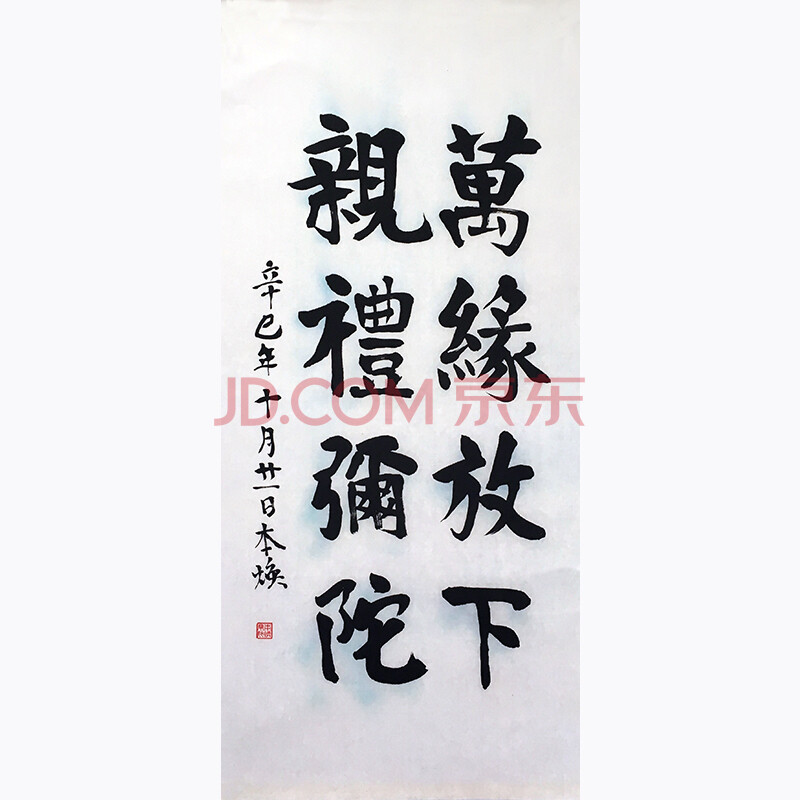 萬緣放下
親禮彌陀
辛巳年十月廿一日本煥
JD.COM 京东